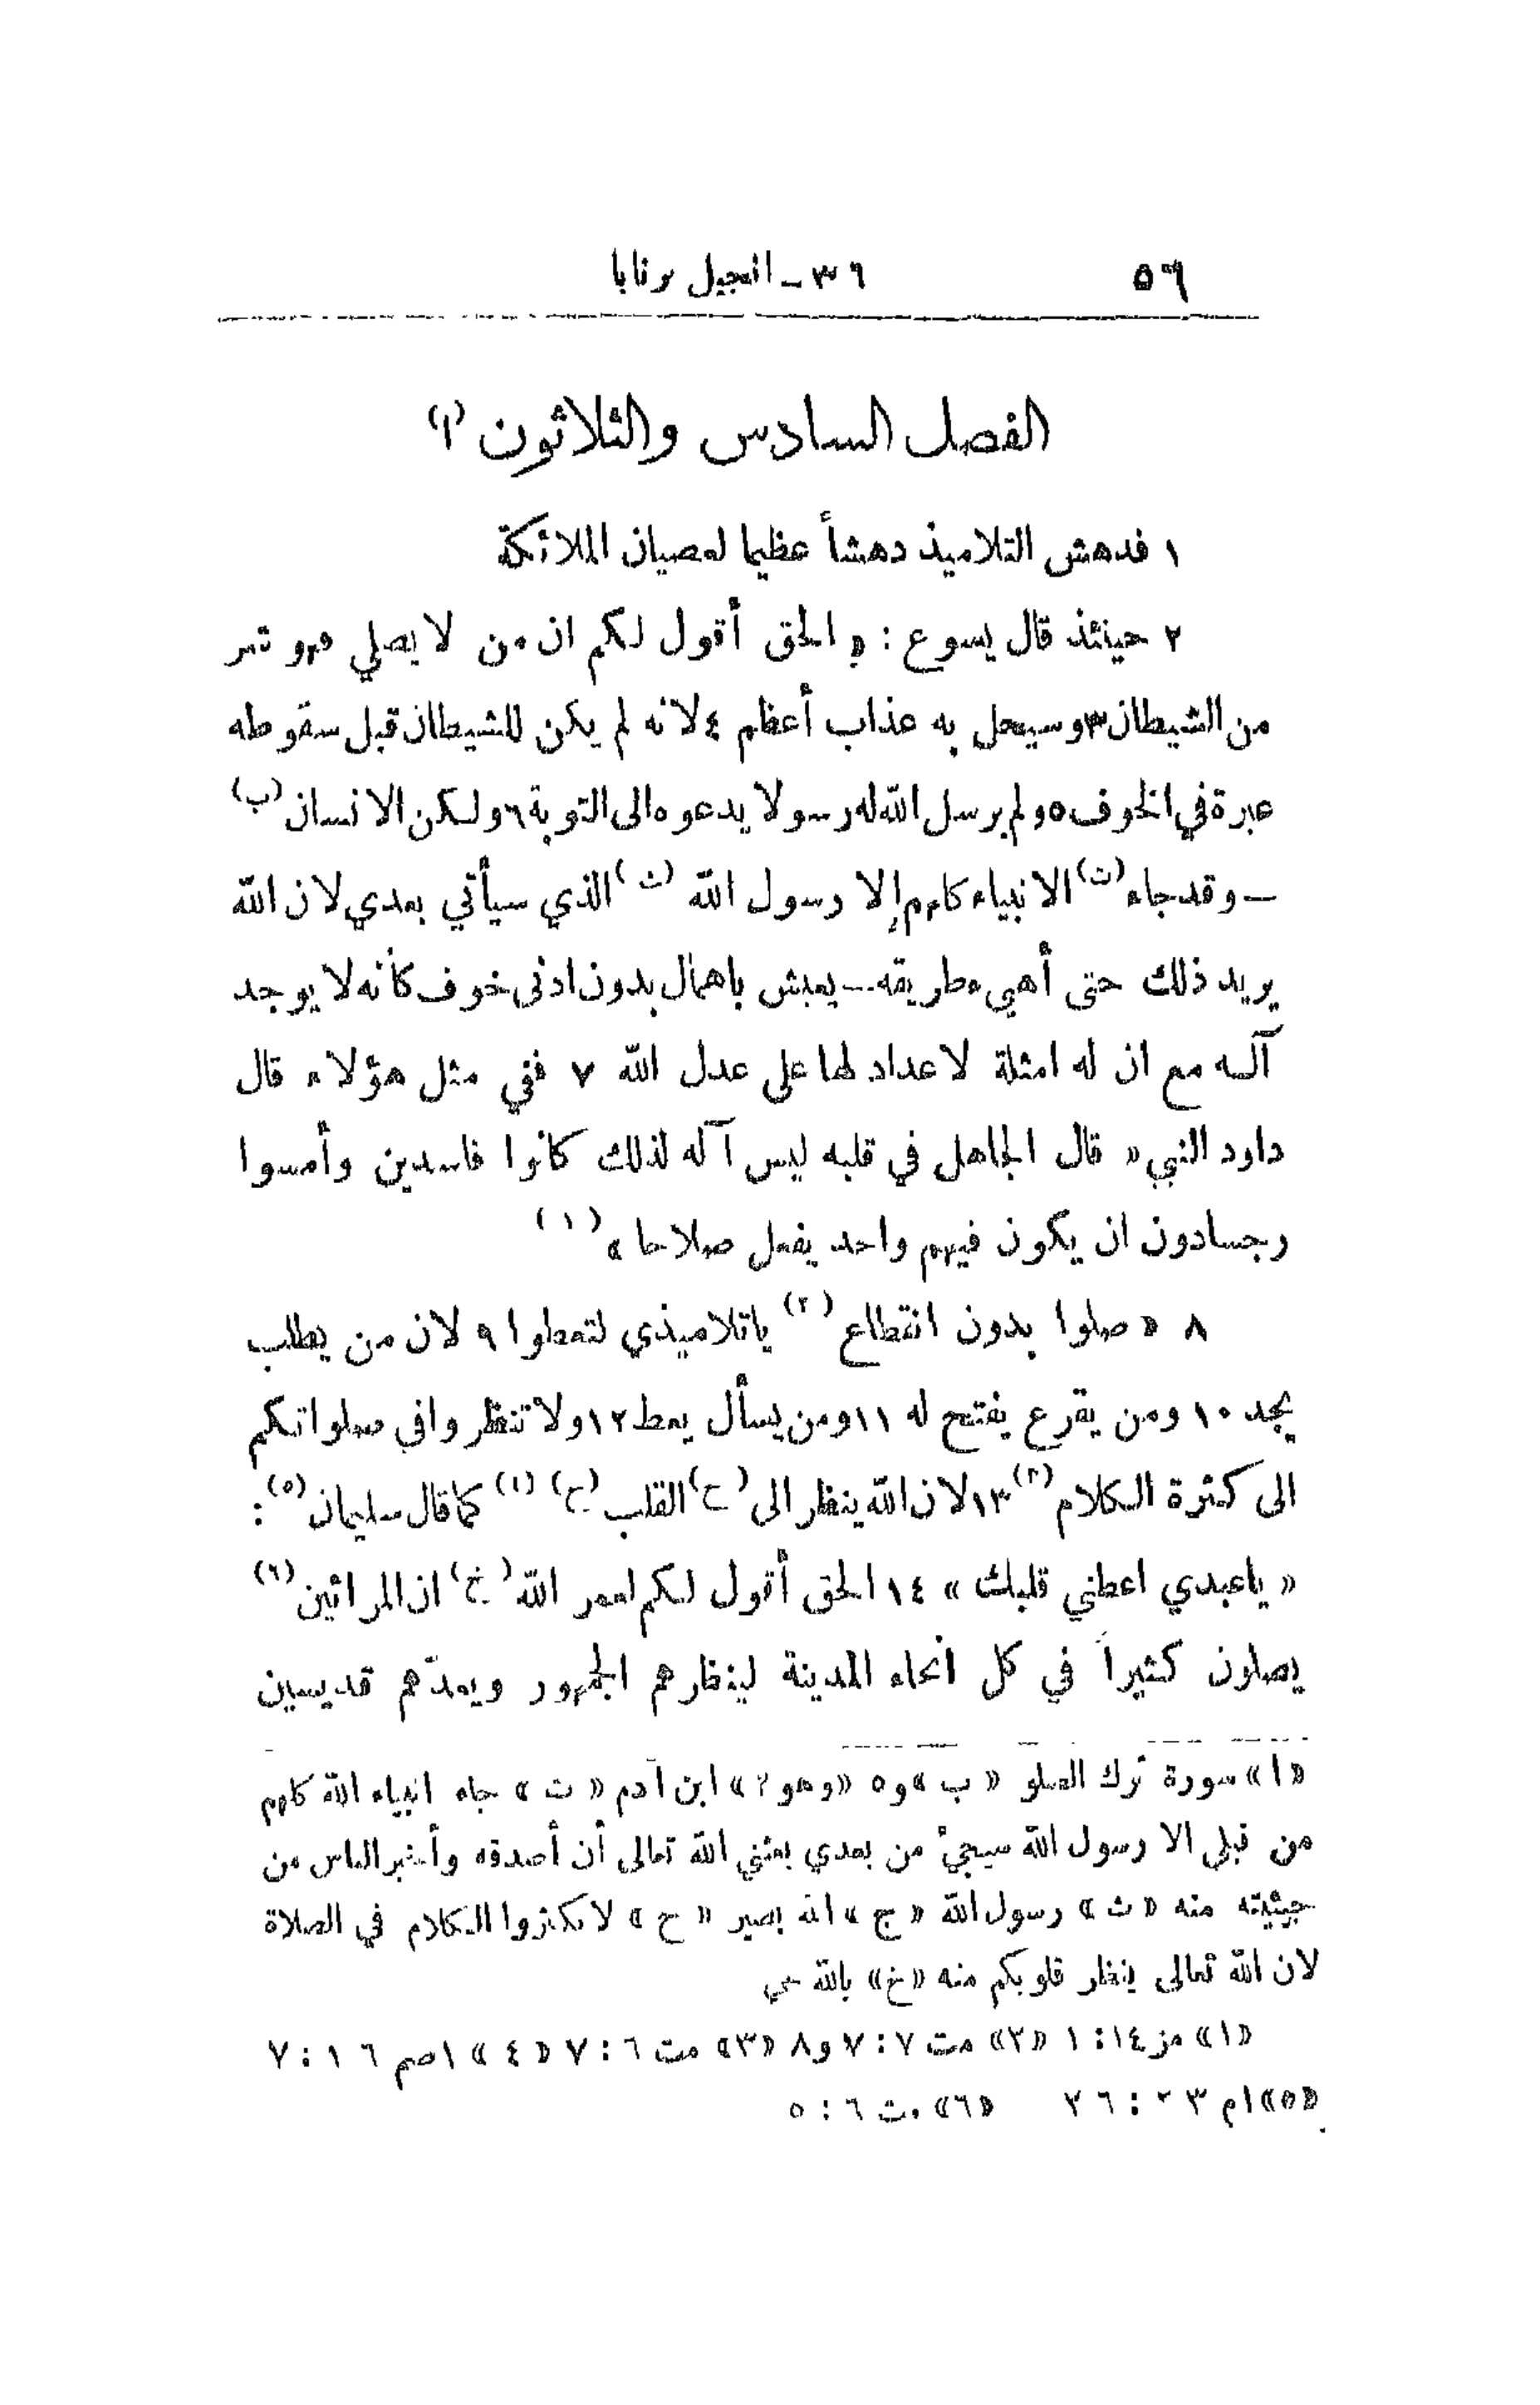 ٥٦ ٣٦ ـ انجيل برنابا
الفصل السادس والثلاثون (ا)
١ فدهش التلاميذ دهشاً عظيما لعصيان الملائكة
٢ حينئذ قال يسوع : « الحق أقول لكم ان من لا يصلي فهو شر
من الشيطان ٣ وسيحل به عذاب أعظم ٤ لانه لم يكن للشيطان قبل سقوطه
عبرة في الخوف ٥ ولم يرسل الله له رسولا يدعوه الى التوبة ٦ ولكن الانسان (ب)
— وقد جاء (ت) الانبياء كلهم إلا رسول الله (ث) الذي سيأتي بعدي لان الله
يريد ذلك حتى أهيء طريقه — يعيش باهمال بدون ادنى خوف كأنه لا يوجد
آله مع ان له امثلة لا عداد لها على عدل الله ٧ ففي مثل هؤلاء قال
داود النبي « قال الجاهل في قلبه ليس آله لذلك كانوا فاسدين وأمسوا
رجسا دون ان يكون فيهم واحد يفعل صلاحا » (١)
٨ « صلوا بدون انقطاع (٢) يا تلاميذي لتعطوا ٩ لان من يطلب
يجد ١٠ ومن يقرع يفتح له ١١ ومن يسأل يعط ١٢ ولا تنظروا في صلواتكم
الى كثرة الكلام (٣) ١٣ لان الله ينظر الى (ح) القلب (ج) (٤) كما قال سليمان (٥) :
« يا عبدي اعطني قلبك » ١٤ الحق أقول لكم لعمر الله (خ) ان المرائين (٦)
يصلون كثيراً في كل انحاء المدينة لينظرهم الجمهور ويعدّهم قديسين
«ا» سورة ترك الصلو « ب » و٥ «وهو ؟» ابن آدم « ت » جاء انبياء الله كلهم
من قبلي الا رسول الله سيجيْ من بعدي بعثني الله تعالى أن أصدقه وأخبر الناس من
جيئيته منه « ث » رسول الله « ج » الله بصير « ح » لا تكثروا الكلام في الصلاة
لان الله تعالى ينظر قلوبكم منه «خ» بالله حي
«١» مز ١٤: ١ «٢» مت ٧: ٧ و٨ «٣» مت ٦ : ٧ « ٤ » ١صم ١٦ : ٧
«٥» ام ٢٣ : ٢٦ «٦» مت ٦ : ٥